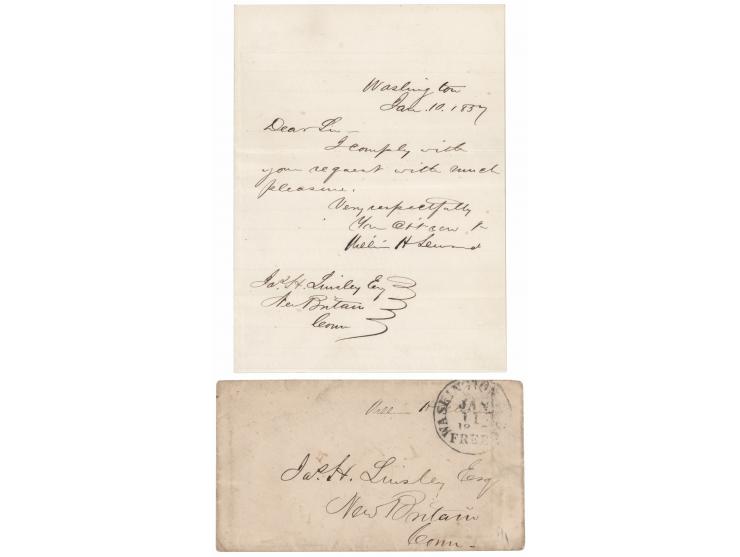 Washington
Jan. 10. 1857
Dear Sir—
I comply with
your request with much
pleasure.
Very respectfully
Your
William H Seward
Jas. H. Linsley Esq
New Britain
Conn
WASHINGTON
JAN
11
FREE
Jas. H. Linsley Esq
New Britain
Conn—